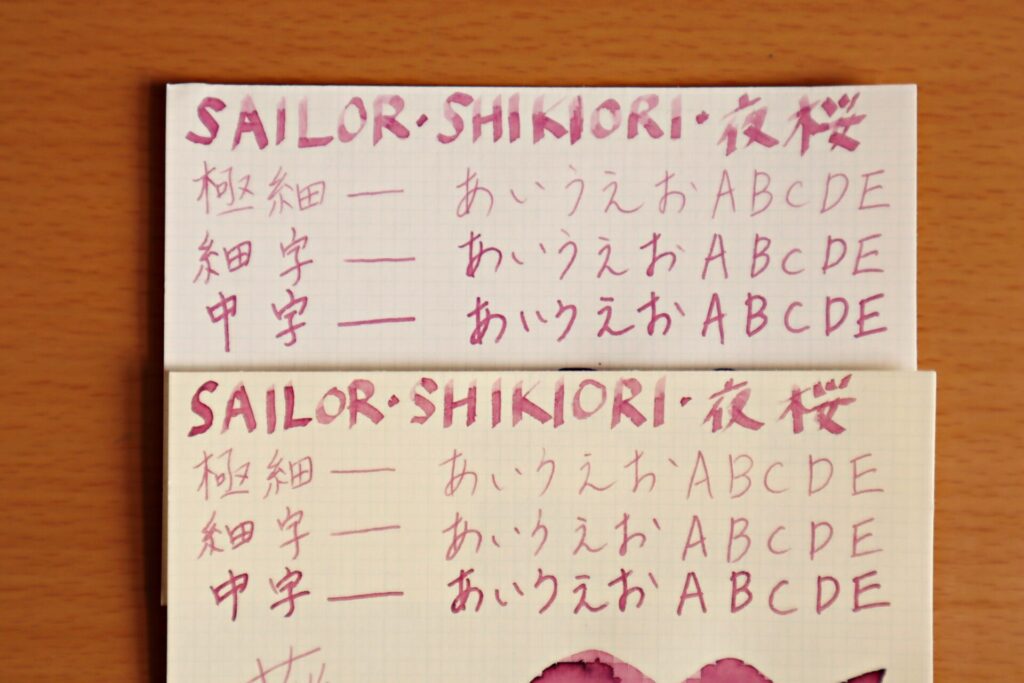 SAILOR・SHIKIORI・夜桜
極細 ー あいうえお ABCDE
細字 ー あいうえお ABCDE
中字 ー あいうえお ABCDE
SAILOR・SHIKIORI・夜桜
極細 ー あいうえお ABCDE
細字 ー あいうえお ABCDE
中字 ー あいうえお ABCDE